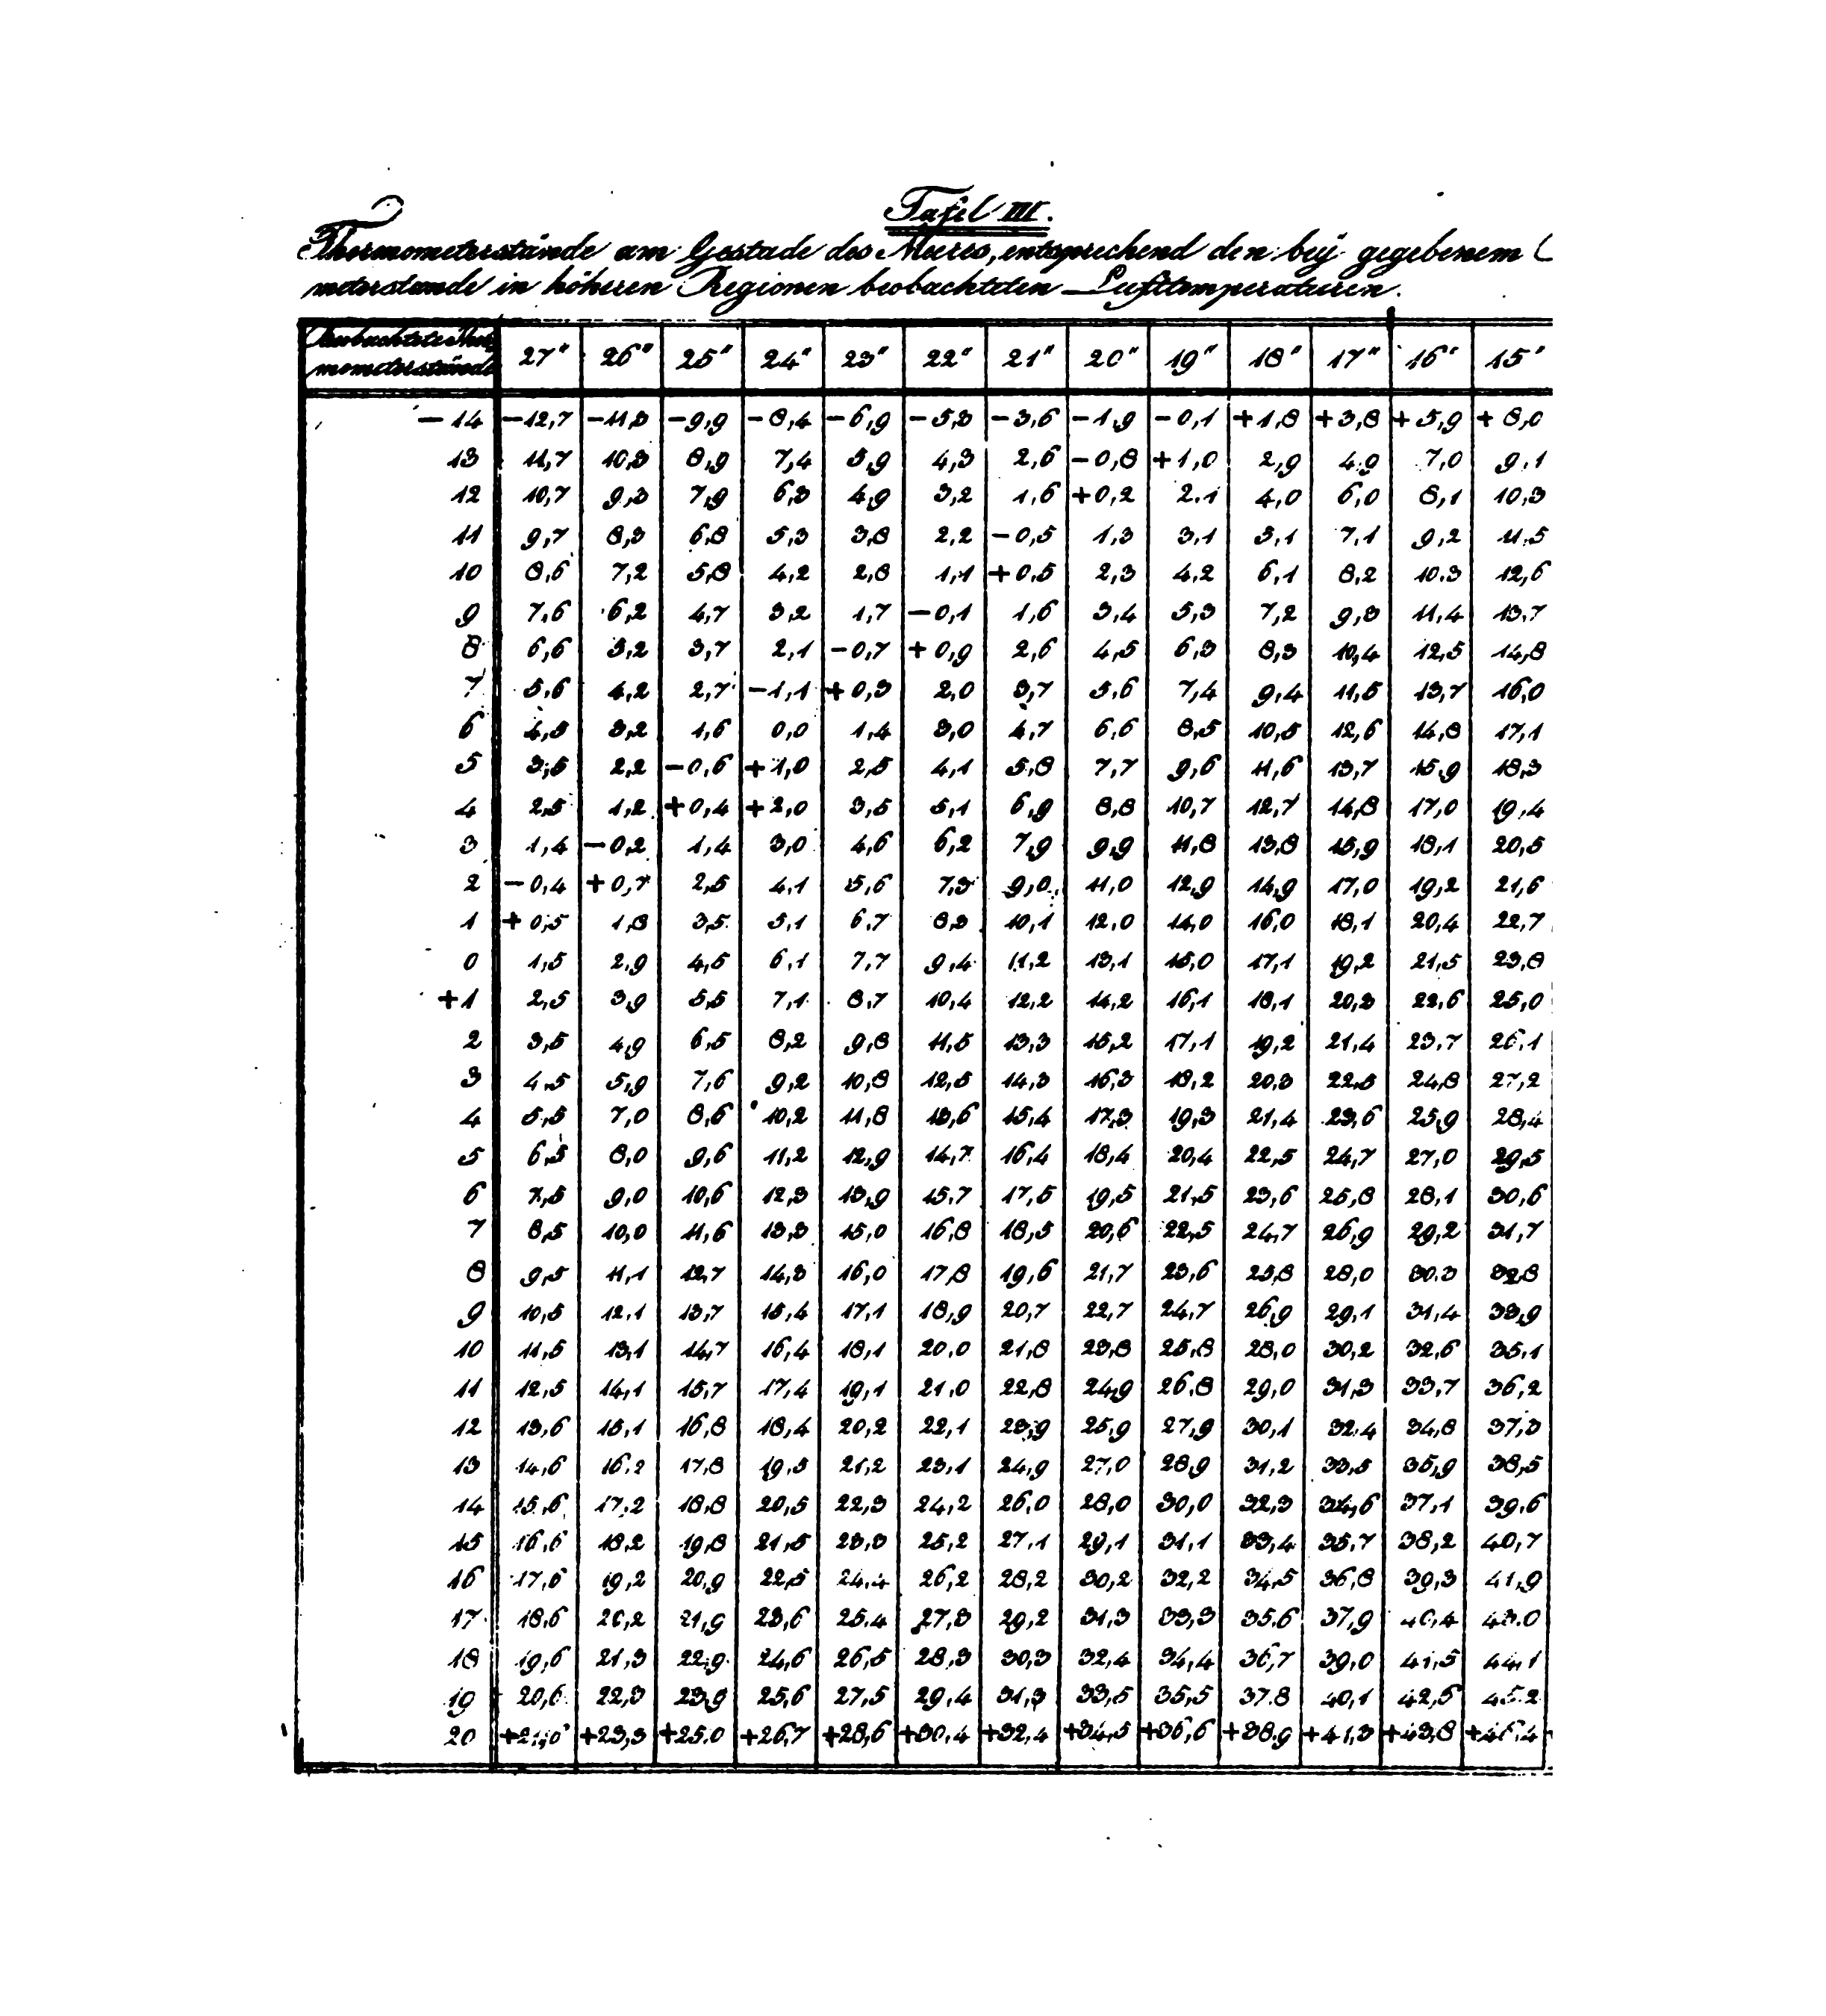 Tafel III.
Thermometerstände am Gestade des Meeres, entsprechend den bey gegebenem
meterstande in höheren Regionen beobachteten Lufttemperaturen.
Beobachtete Ther
mometerstände 27" 26" 25" 24" 23" 22" 21" 20" 19" 18" 17" 16" 15"
-14 -12,7 -11,3 -9,9 -8,4 -6,9 -5,3 -3,6 -1,9 -0,1 +1,8 +3,8 +5,9 +8,0
13 11,7 10,3 8,9 7,4 5,9 4,3 2,6 -0,8 +1,0 2,9 4,9 7,0 9,1
12 10,7 9,3 7,9 6,3 4,9 3,2 1,6 +0,2 2,1 4,0 6,0 8,1 10,3
11 9,7 8,3 6,8 5,3 3,8 2,2 -0,5 1,3 3,1 5,1 7,1 9,2 11,5
10 8,6 7,2 5,8 4,2 2,8 1,1 +0,5 2,3 4,2 6,1 8,2 10,3 12,6
9 7,6 6,2 4,7 3,2 1,7 -0,1 1,6 3,4 5,3 7,2 9,3 11,4 13,7
8 6,6 5,2 3,7 2,1 -0,7 +0,9 2,6 4,5 6,3 8,3 10,4 12,5 14,8
7 5,6 4,2 2,7 -1,1 +0,3 2,0 3,7 5,6 7,4 9,4 11,5 13,7 16,0
6 4,5 3,2 1,6 0,0 1,4 3,0 4,7 6,6 8,5 10,5 12,6 14,8 17,1
5 3,5 2,2 -0,6 +1,0 2,5 4,1 5,8 7,7 9,6 11,6 13,7 15,9 18,3
4 2,5 1,2 +0,4 +2,0 3,5 5,1 6,9 8,8 10,7 12,7 14,8 17,0 19,4
3 1,4 -0,2 1,4 3,0 4,6 6,2 7,9 9,9 11,8 13,8 15,9 18,1 20,5
2 -0,4 +0,7 2,5 4,1 5,6 7,3 9,0 11,0 12,9 14,9 17,0 19,2 21,6
1 +0,5 1,8 3,5 5,1 6,7 8,3 10,1 12,0 14,0 16,0 18,1 20,4 22,7
0 1,5 2,9 4,5 6,1 7,7 9,4 11,2 13,1 15,0 17,1 19,2 21,5 23,8
+1 2,5 3,9 5,5 7,1 8,7 10,4 12,2 14,2 16,1 18,1 20,3 22,6 25,0
2 3,5 4,9 6,5 8,2 9,8 11,5 13,3 15,2 17,1 19,2 21,4 23,7 26,1
3 4,5 5,9 7,6 9,2 10,8 12,5 14,3 16,3 18,2 20,3 22,5 24,8 27,2
4 5,5 7,0 8,6 10,2 11,8 13,6 15,4 17,3 19,3 21,4 23,6 25,9 28,4
5 6,5 8,0 9,6 11,2 12,9 14,7 16,4 18,4 20,4 22,5 24,7 27,0 29,5
6 7,5 9,0 10,6 12,3 13,9 15,7 17,5 19,5 21,5 23,6 25,8 28,1 30,6
7 8,5 10,0 11,6 13,3 15,0 16,8 18,5 20,6 22,5 24,7 26,9 29,2 31,7
8 9,5 11,1 12,7 14,3 16,0 17,8 19,6 21,7 23,6 25,8 28,0 30,3 32,8
9 10,5 12,1 13,7 15,4 17,1 18,9 20,7 22,7 24,7 26,9 29,1 31,4 33,9
10 11,5 13,1 14,7 16,4 18,1 20,0 21,8 23,8 25,8 28,0 30,2 32,6 35,1
11 12,5 14,1 15,7 17,4 19,1 21,0 22,8 24,9 26,8 29,0 31,3 33,7 36,2
12 13,6 15,1 16,8 18,4 20,2 22,1 23,9 25,9 27,9 30,1 32,4 34,8 37,3
13 14,6 16,2 17,8 19,5 21,2 23,1 24,9 27,0 28,9 31,2 33,5 35,9 38,5
14 15,6 17,2 18,8 20,5 22,3 24,2 26,0 28,0 30,0 32,3 34,6 37,1 39,6
15 16,6 18,2 19,8 21,5 23,3 25,2 27,1 29,1 31,1 33,4 35,7 38,2 40,7
16 17,6 19,2 20,9 22,5 24,4 26,2 28,2 30,2 32,2 34,5 36,8 39,3 41,9
17 18,6 20,2 21,9 23,6 25,4 27,3 29,2 31,3 33,3 35,6 37,9 40,4 43,0
18 19,6 21,3 22,9 24,6 26,5 28,3 30,3 32,4 34,4 36,7 39,0 41,5 44,1
19 20,6 22,3 23,9 25,6 27,5 29,4 31,3 33,5 35,5 37,8 40,1 42,6 45,2
20 +21,6 +23,3 +25,0 +26,7 +28,6 +30,4 +32,4 +34,5 +36,6 +38,9 +41,3 +43,8 +46,4